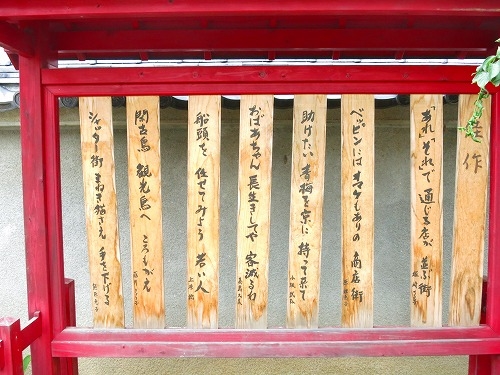 佳作
「あれ」「それ」で 通じる店が 並ぶ街
ベッピンには オマケもありの 商店街
助けたい 青梅を京に 持って来て
おばあちゃん 長生きしてや 客減るわ
船頭を 任せてみよう 若い人
閑古鳥 観光鳥へ ころもがえ
シャッター街 まねき猫さえ 手を下げる